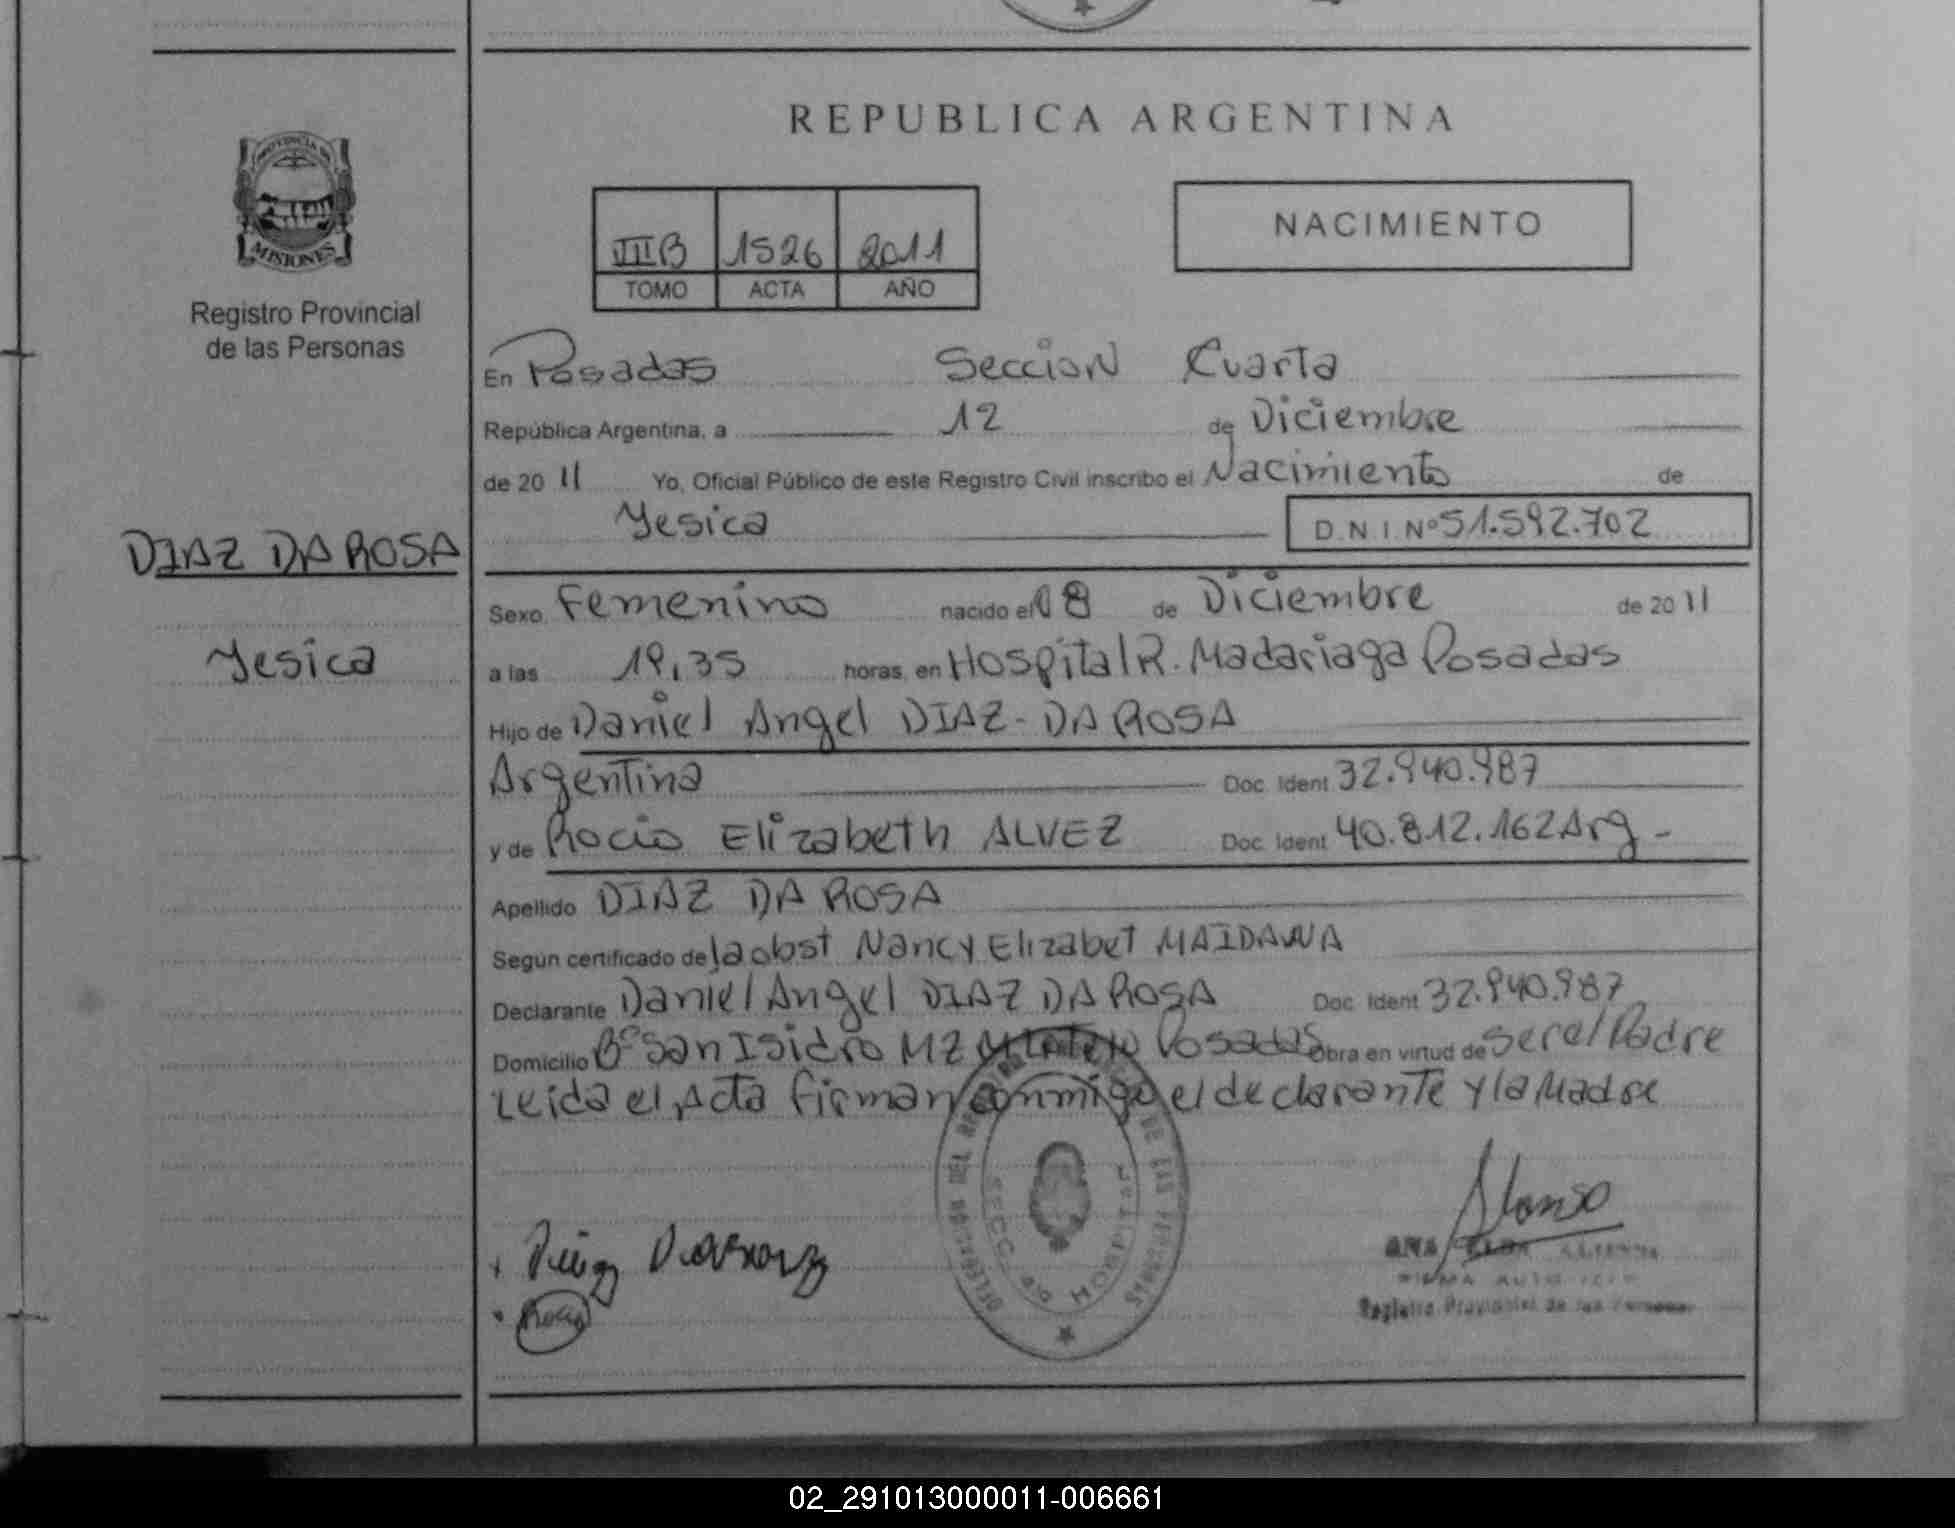 REPUBLICA ARGENTINA
PROVINCIA DE
MISIONES
Registro Provincial
de las Personas
NACIMIENTO
IIIB 1526 2011
TOMO ACTA AÑO
En Posadas Seccion Cuarta
República Argentina, a 12 de Diciembre
de 20 11 Yo, Oficial Público de este Registro Civil inscribo el Nacimiento de
Yesica D.N.I. Nº 51.592.702
DIAZ DA ROSA
Yesica
Sexo Femenino nacido el 08 de Diciembre de 20 11
a las 19,35 horas, en Hospital R. Madariaga Posadas
Hijo de Daniel Angel DIAZ - DA ROSA
Argentina Doc. Ident 32.940.987
y de Rocio Elizabeth ALVEZ Doc. Ident 40.812.162 Arg -
Apellido DIAZ DA ROSA
Según certificado de la obst Nancy Elizabet MAIDANA
Declarante Daniel Angel DIAZ DA ROSA Doc. Ident 32.940.987
Domicilio Bº San Isidro MZ Posadas Obra en virtud de ser el Padre
Leida el Acta firman conmigo el declarante y la Madre
DE LAS PERSONAS
SECC. 4º HOSPITAL
Rocio
Alonso
ANA
Registro Provincial de las Personas
02_291013000011-006661